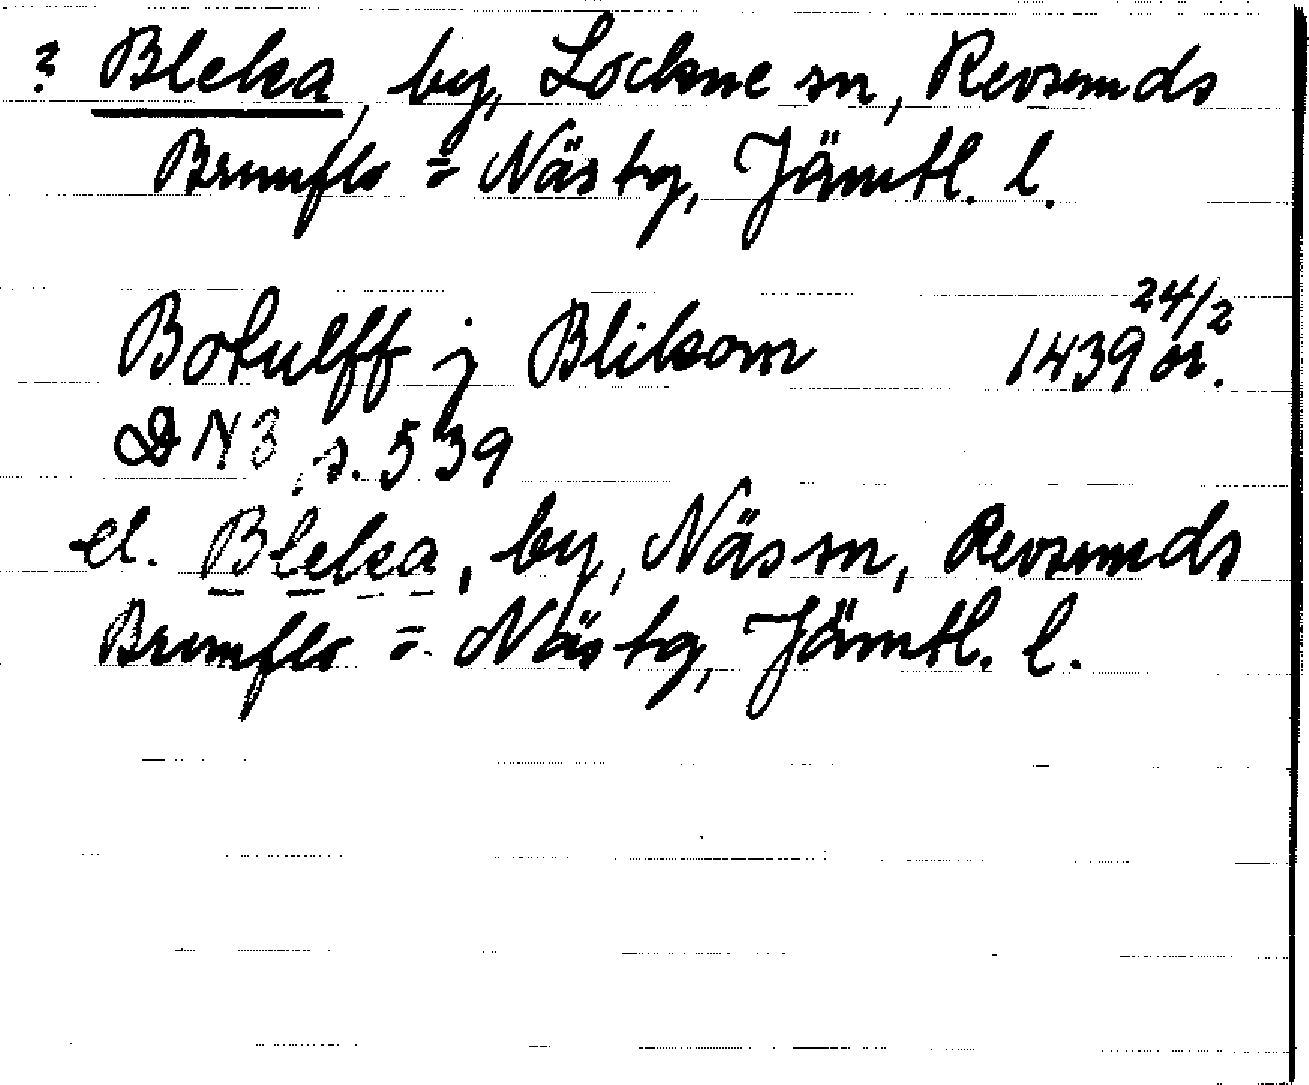 ? Bleka, by, Lockne sn, Revsunds
Brunflo = Näs tg, Jämtl. l.
24/2
Botulff j Blikom 1439 or.
DN 3, s. 539
el. Bleka, by, Näs sn, Revsunds
Brunflo = Näs tg, Jämtl. l.